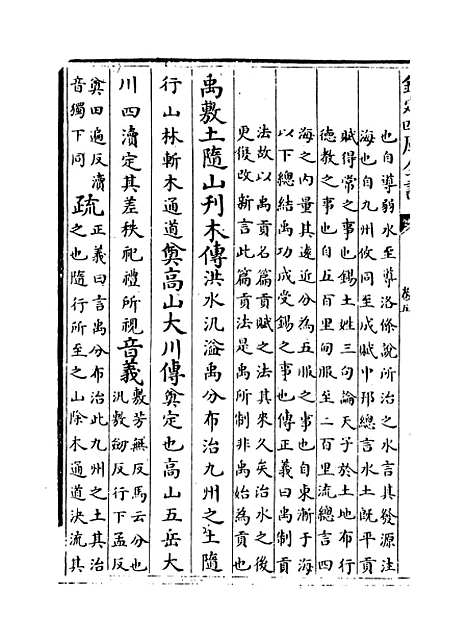 欽定四庫全書
也自導弱水至導洛條說所治之水言其發源注
海也自九州攸同至成賦中邦總言水土既平貢
賦得常之事也錫土姓三句論天子於土地布行
德教之事也自五百里甸服至二百里流總言四
海之内量其遠近分為五服之事也自東漸于海
以下總結禹功成受錫之事也傳正義曰禹制貢
法故以禹貢名篇貢賦之法其來久矣治水之後
更復改新言此篇貢法是禹所制非禹始為貢也
禹敷土隨山刋木傳洪水汎溢禹分布治九州之土隨
行山林斬木通道奠高山大川傳奠定也高山五岳大
川四瀆定其差秩祀禮所視音義敷芳無反馬云分也
汎敷劒反行下孟反
奠田遍反瀆
音獨下同
疏正義曰言禹分布治此九州之土其治
之也隨行所至之山除木通道決流其